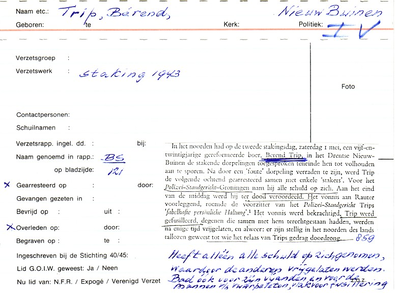 Naam etc.: Trip, Bérend, Nieuw Buinen
Geboren: te Kerk: Politiek: IV
Verzetsgroep :
Verzetswerk : staking 1943
Foto
Contactpersonen:
Schuilnaam :
Verzetsrapp. ingel. dd. : bij:
Naam genoemd in rapp.: BS
op bladzijde:
x Gearresteerd op : door:
Gevangen gezeten in :
Bevrijd op : uit :
x Overleden op : door:
Begraven op : te :
Ingeschreven bij de Stichting 40/45:
Lid G.O.I.W. geweest: Ja / Neen
Nu lid van: N.F.R. / Expogé / Verenigd Verzet
In het noorden had op de tweede stakingsdag, zaterdag 1 mei, een vijf-en-
twintigjarige gereformeerde boer, Berend Trip, in het Drentse Nieuw-
Buinen de stakende dorpelingen toegesproken teneinde hen tot volhouden
aan te sporen. Na door een 'foute' dorpeling verraden te zijn, werd Trip
de volgende ochtend gearresteerd samen met enkele 'stakers'. Voor het
Polizei-Standgericht-Groningen nam hij alle schuld op zich. Aan het eind
van de middag werd hij ter dood veroordeeld. Het vonnis aan Rauter
voorleggend, roemde de voorzitter van het Polizei-Standgericht Trips
'fabelhafte persönliche Haltung'. Het vonnis werd bekrachtigd, Trip werd
gefusilleerd, degenen die samen met hem terechtgestaan hadden, werden
na enige tijd vrijgelaten, en alweer: er zijn stellig in het noorden des lands
talloreen geweest tot wie het relaas van Trips gedrag doordrong. 859
Heeft alléén alle schuld op zich genomen,
waardoor de anderen vrijgelaten werden.
Bad ook voor zijn vijanden en voor de